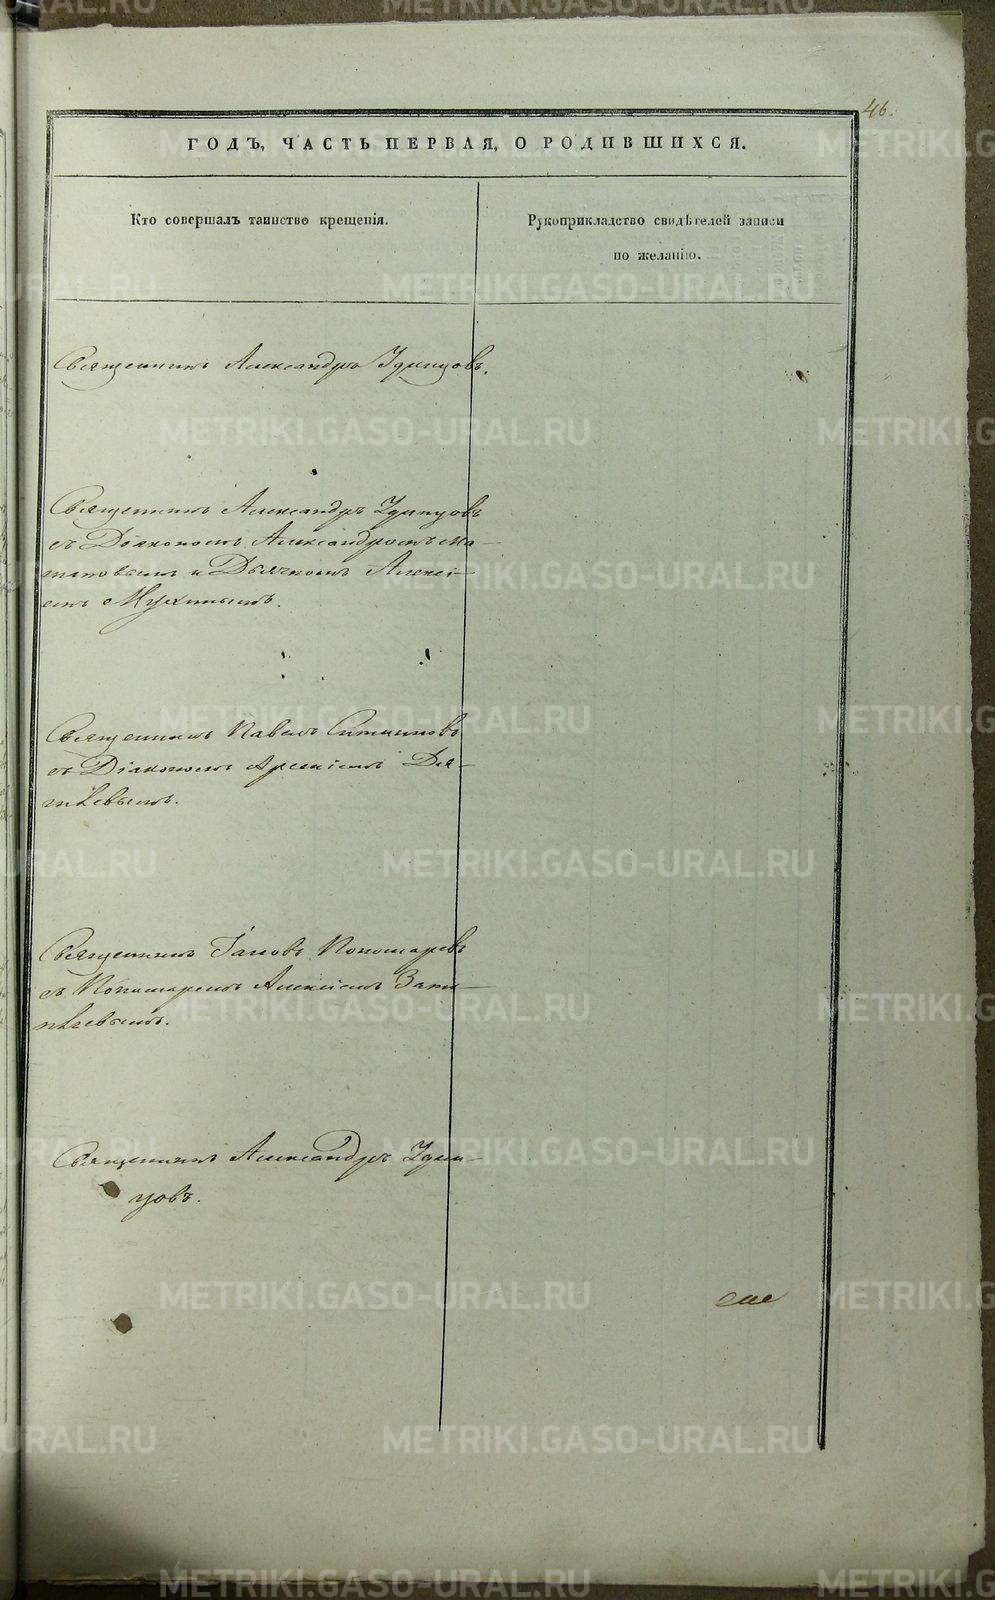 46.
ГОДЪ, ЧАСТЬ ПЕРВАЯ, О РОДИВШИХСЯ.
Кто совершалъ таинство крещенія.
Рукоприкладство свидѣтелей записи
по желанію.
Священникъ Александръ Удинцовъ.
Священникъ Александръ Удинцовъ
съ Діакономъ Александромъ Ма-
миновымъ и Дьячкомъ Алексі-
емъ Мухинымъ.
Священникъ Павелъ Ситниковъ
съ Діакономъ Арсеніемъ
Священникъ Іаковъ Пономаревъ
съ Пономаремъ Алексіемъ
Священникъ Александръ Удин-
цовъ.
METRIKI.GASO-URAL.RU